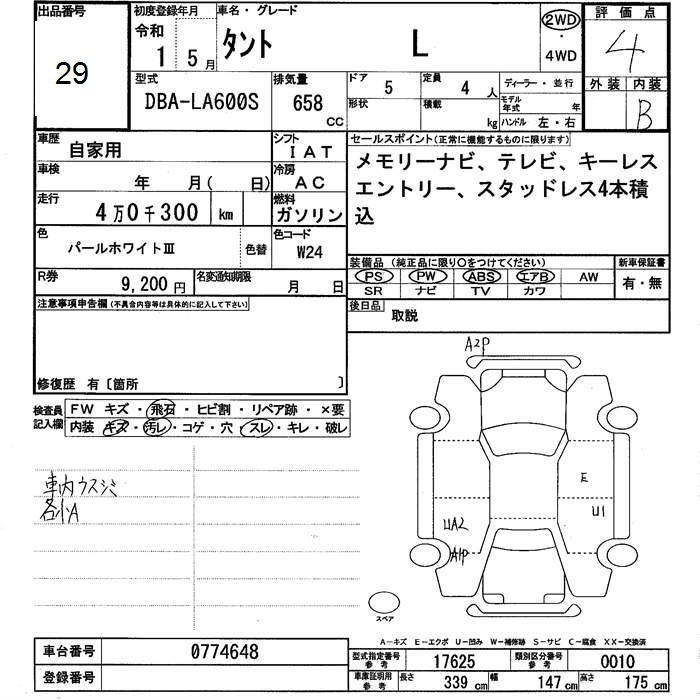 出品番号
29
初度登録年月
令和
1 5月
車名・グレード
タント L
2WD
・
4WD
評価点
4
外装 内装
B
型式
DBA-LA600S
排気量
658 CC
ドア 5
形状
定員 4人
積載 kg
ディーラー・並行
モデル年式 年
ハンドル 左・右
車歴
自家用
シフト
IAT
車検
年 月( 日)
冷房
AC
走行
4万0千300 km
燃料
ガソリン
色
パールホワイトⅢ
色替
色コード
W24
R券
9,200円
名変通知期限
月 日
セールスポイント(正常に機能するものに限ります)
メモリーナビ、テレビ、キーレス
エントリー、スタッドレス4本積
込
装備品(純正品に限り○をつけてください)
PS PW ABS エアB AW
SR ナビ TV カワ
新車保証書
有・無
後日品
取説
注意事項申告欄(不具合内容等は具体的に記入して下さい)
修復歴 有〔箇所 〕
検査員
記入欄
FW キズ・飛石・ヒビ割・リペア跡・×要
内装 キズ・汚レ・コゲ・穴・スレ・キレ・破レ
車内ウスシミ
各小A
A2P
E
U1
UA2
A1P
スペア
A―キズ E―エクボ U―凹み W―補修跡 S―サビ C―腐食 XX―交換済
車台番号
0774648
登録番号
型式指定番号
参考
17625
類別区分番号
参考
0010
車庫証明用
参考
長さ 339cm
幅 147cm
高さ 175cm